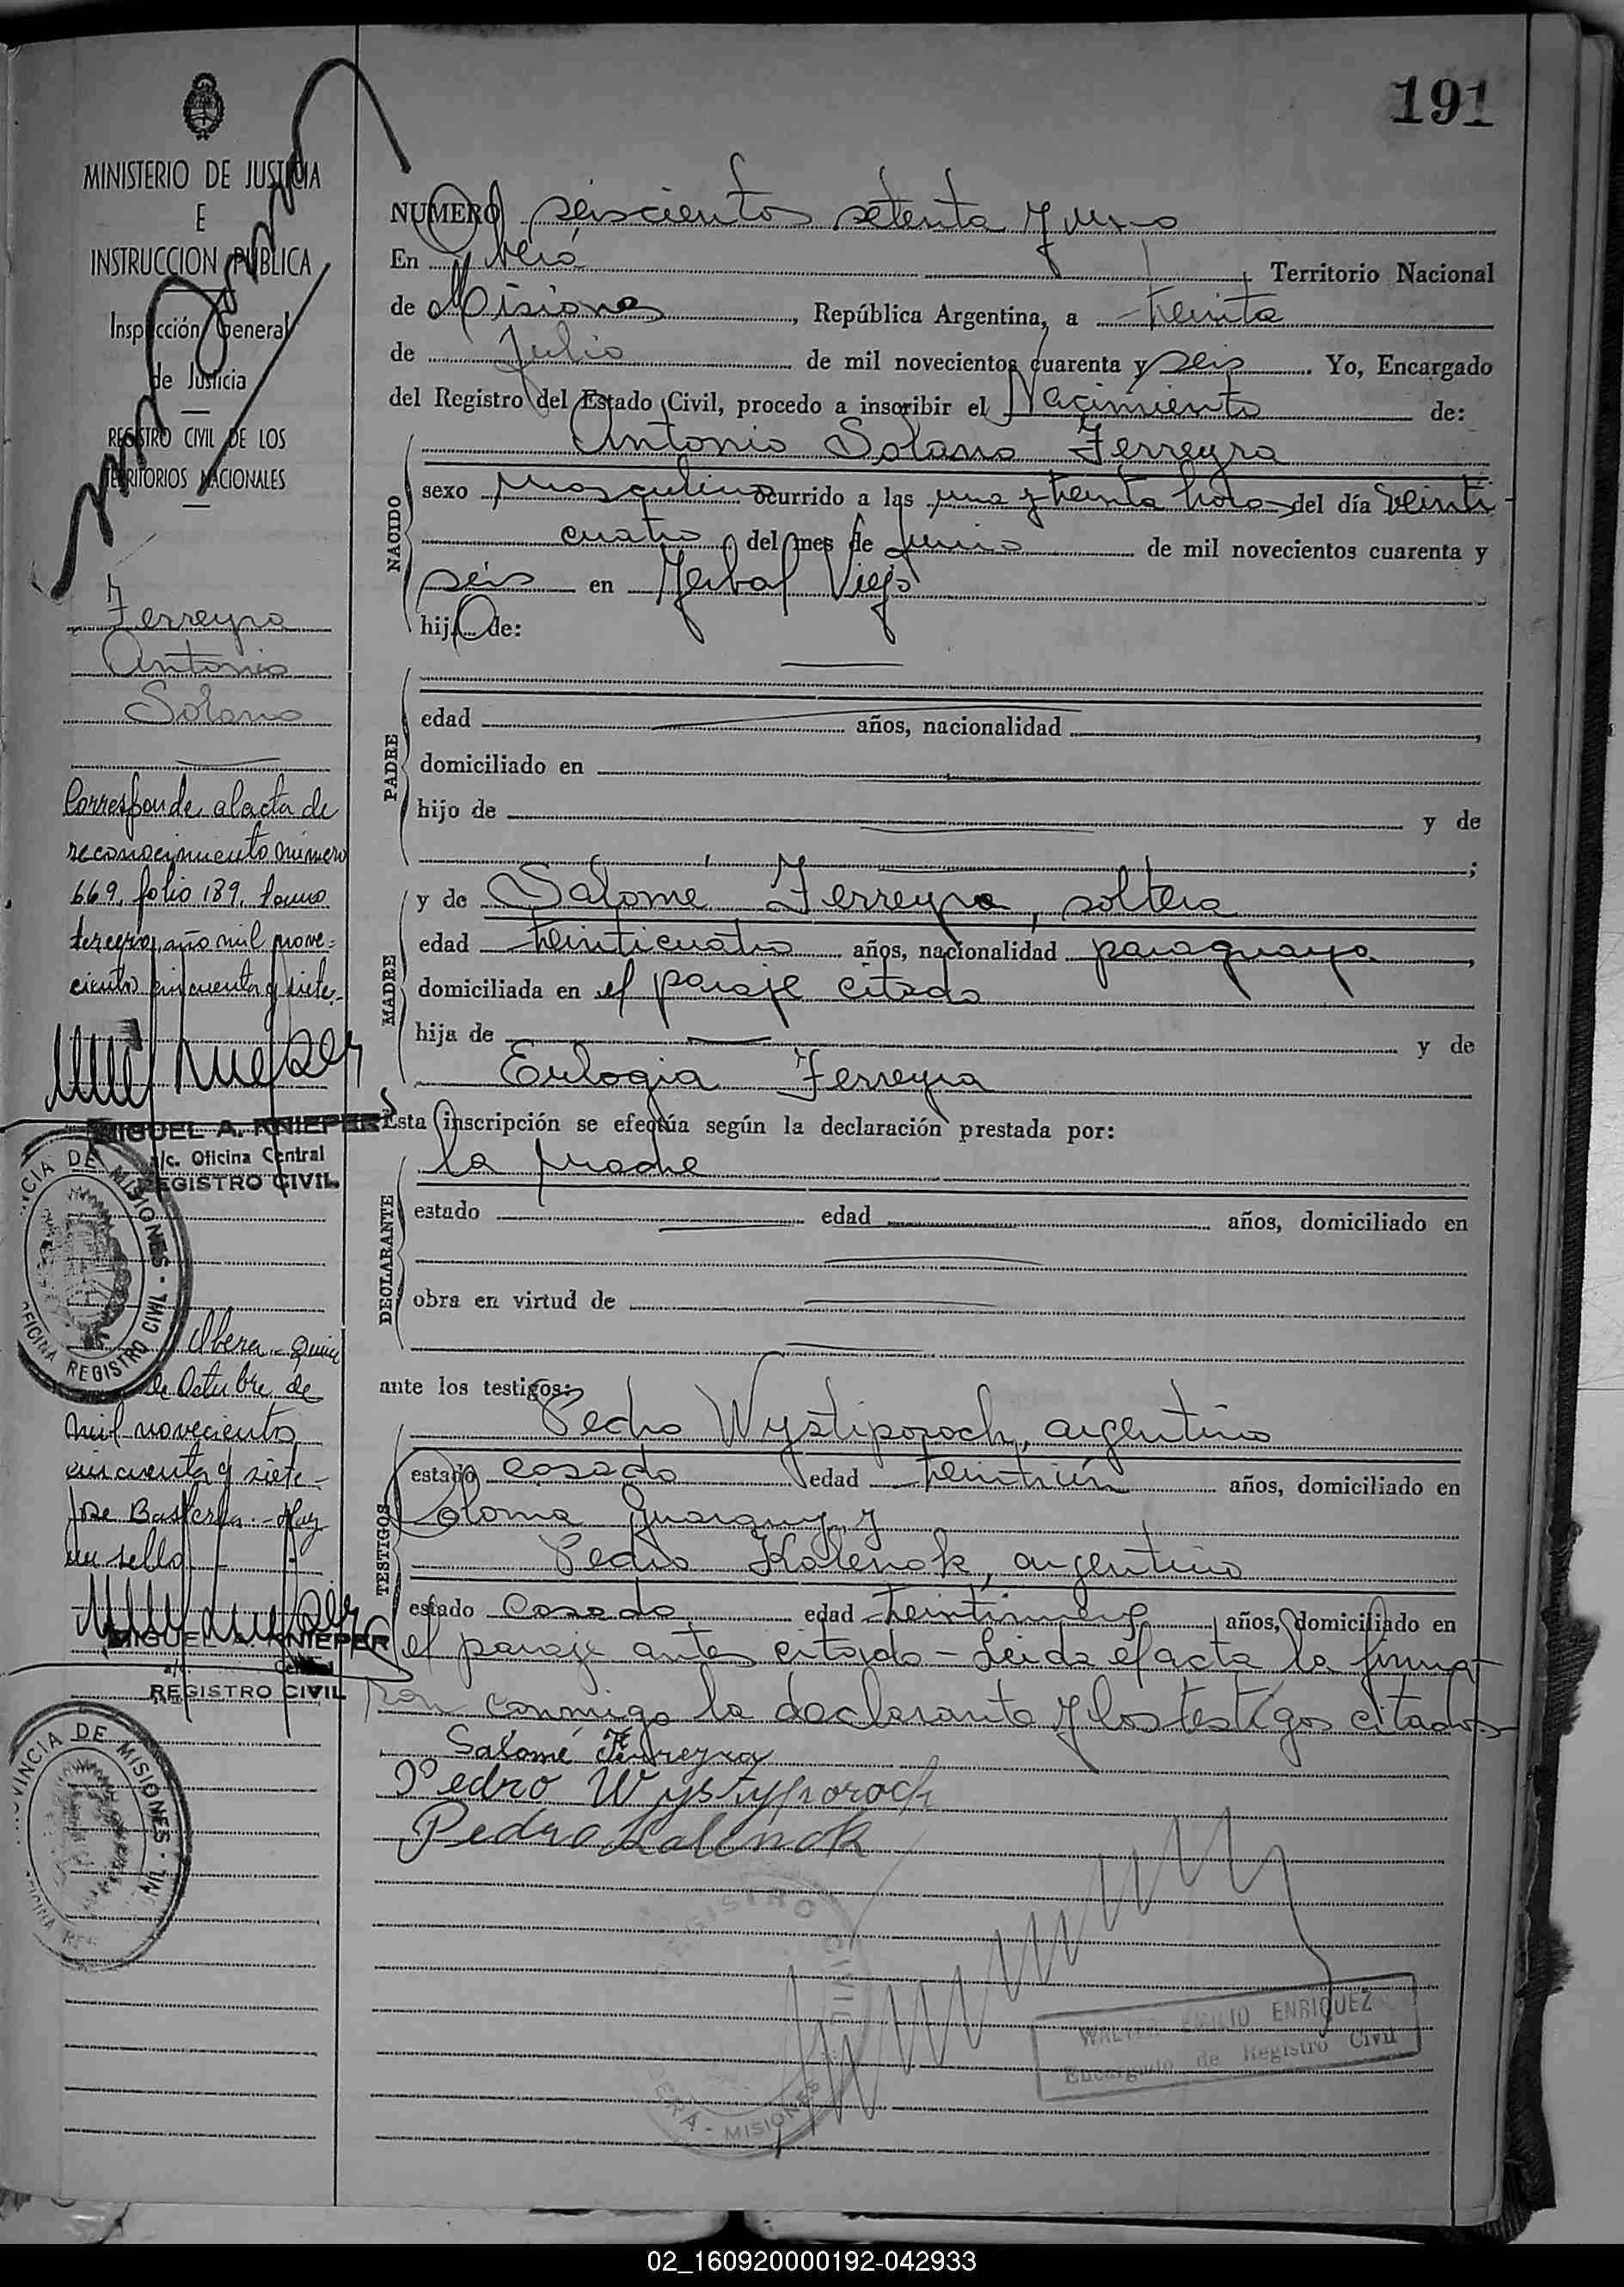 191
MINISTERIO DE JUSTICIA
E
INSTRUCCION PUBLICA
Inspección General
de Justicia
REGISTRO CIVIL DE LOS
TERRITORIOS NACIONALES
Ferreyra
Antonio
Solano
Corresponde al acta de
reconocimiento número
669, folio 189, tomo
tercero, año mil nove=
cientos cincuenta y siete.-
MIGUEL A. KNIEPER
a/c. Oficina Central
REGISTRO CIVIL
PROVINCIA DE MISIONES - OFICINA REGISTRO CIVIL
Obera - Quince
de Octubre de
mil novecientos
cincuenta y siete -
Jose - Hay
un sello -
MIGUEL A. KNIEPER
a/c. Central
REGISTRO CIVIL
PROVINCIA DE MISIONES - OFICINA REG CIVIL
NUMERO seiscientos setenta y uno
En Oberá Territorio Nacional
de Misiones, República Argentina, a treinta
de Julio de mil novecientos cuarenta y seis. Yo, Encargado
del Registro del Estado Civil, procedo a inscribir el Nacimiento de:
NACIDO
Antonio Solano Ferreyra
sexo masculino ocurrido a las una y treinta horas del día veinti
cuatro del mes de Junio de mil novecientos cuarenta y
seis en Yerbal Viejo
hijo de:
PADRE
edad años, nacionalidad ,
domiciliado en
hijo de y de
;
MADRE
y de Salomé Ferreyra, soltera
edad veinticuatro años, nacionalidad paraguaya,
domiciliada en el paraje citado
hija de — y de
Eulogia Ferreyra
Esta inscripción se efectúa según la declaración prestada por:
DECLARANTE
la madre
estado edad años, domiciliado en
obra en virtud de
ante los testigos:
TESTIGOS
Pedro Wystiporoch, argentino
estado casado edad años, domiciliado en
y
Pedro Kalenok, argentino
estado casado edad años, domiciliado en
el paraje antes citado - Leida el acta la firma-
ron conmigo la declarante y los testigos citados
Salomé Ferreyra
Pedro Wystyporoch
Pedro Kalenok
REGISTRO CIVIL
OBERA - MISIONES
WALTER EMILIO ENRIQUEZ
Encargado de Registro Civil
02_160920000192-042933